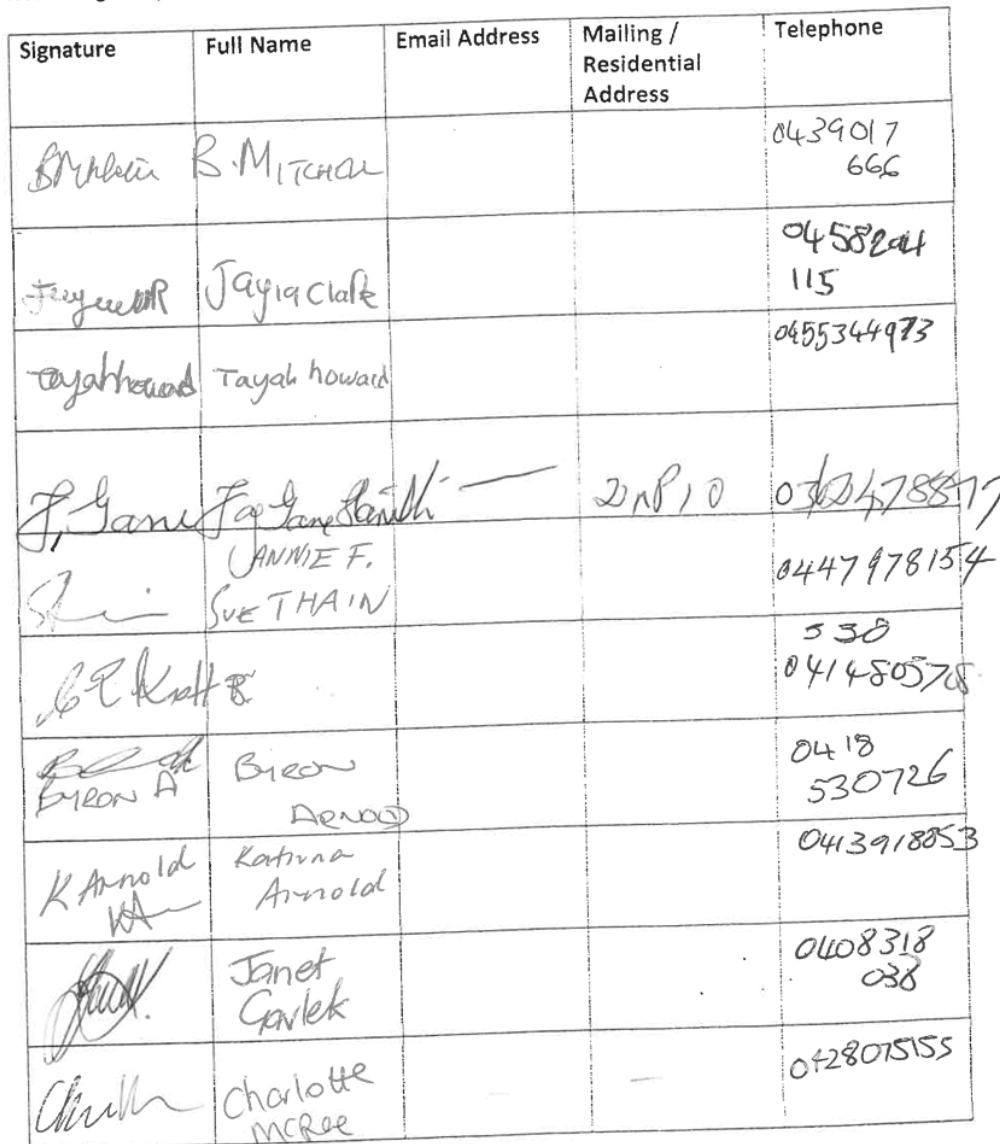 Signature Full Name Email Address Mailing /
Residential
Address Telephone
B. MITCHELL 0439017
666
Jayla Clark 0458204
115
tayahhoward Tayah howard 0455344973
F, Jane 
ANNIE F.
SUE THAIN 0447978154
530
BYRON A BYRON
ARNOLD 0418
530726
K Arnold
KA Katrina
Arnold 0413918853
Janet
Gavlek 0408318
038
Charlotte
McRae 0428075155